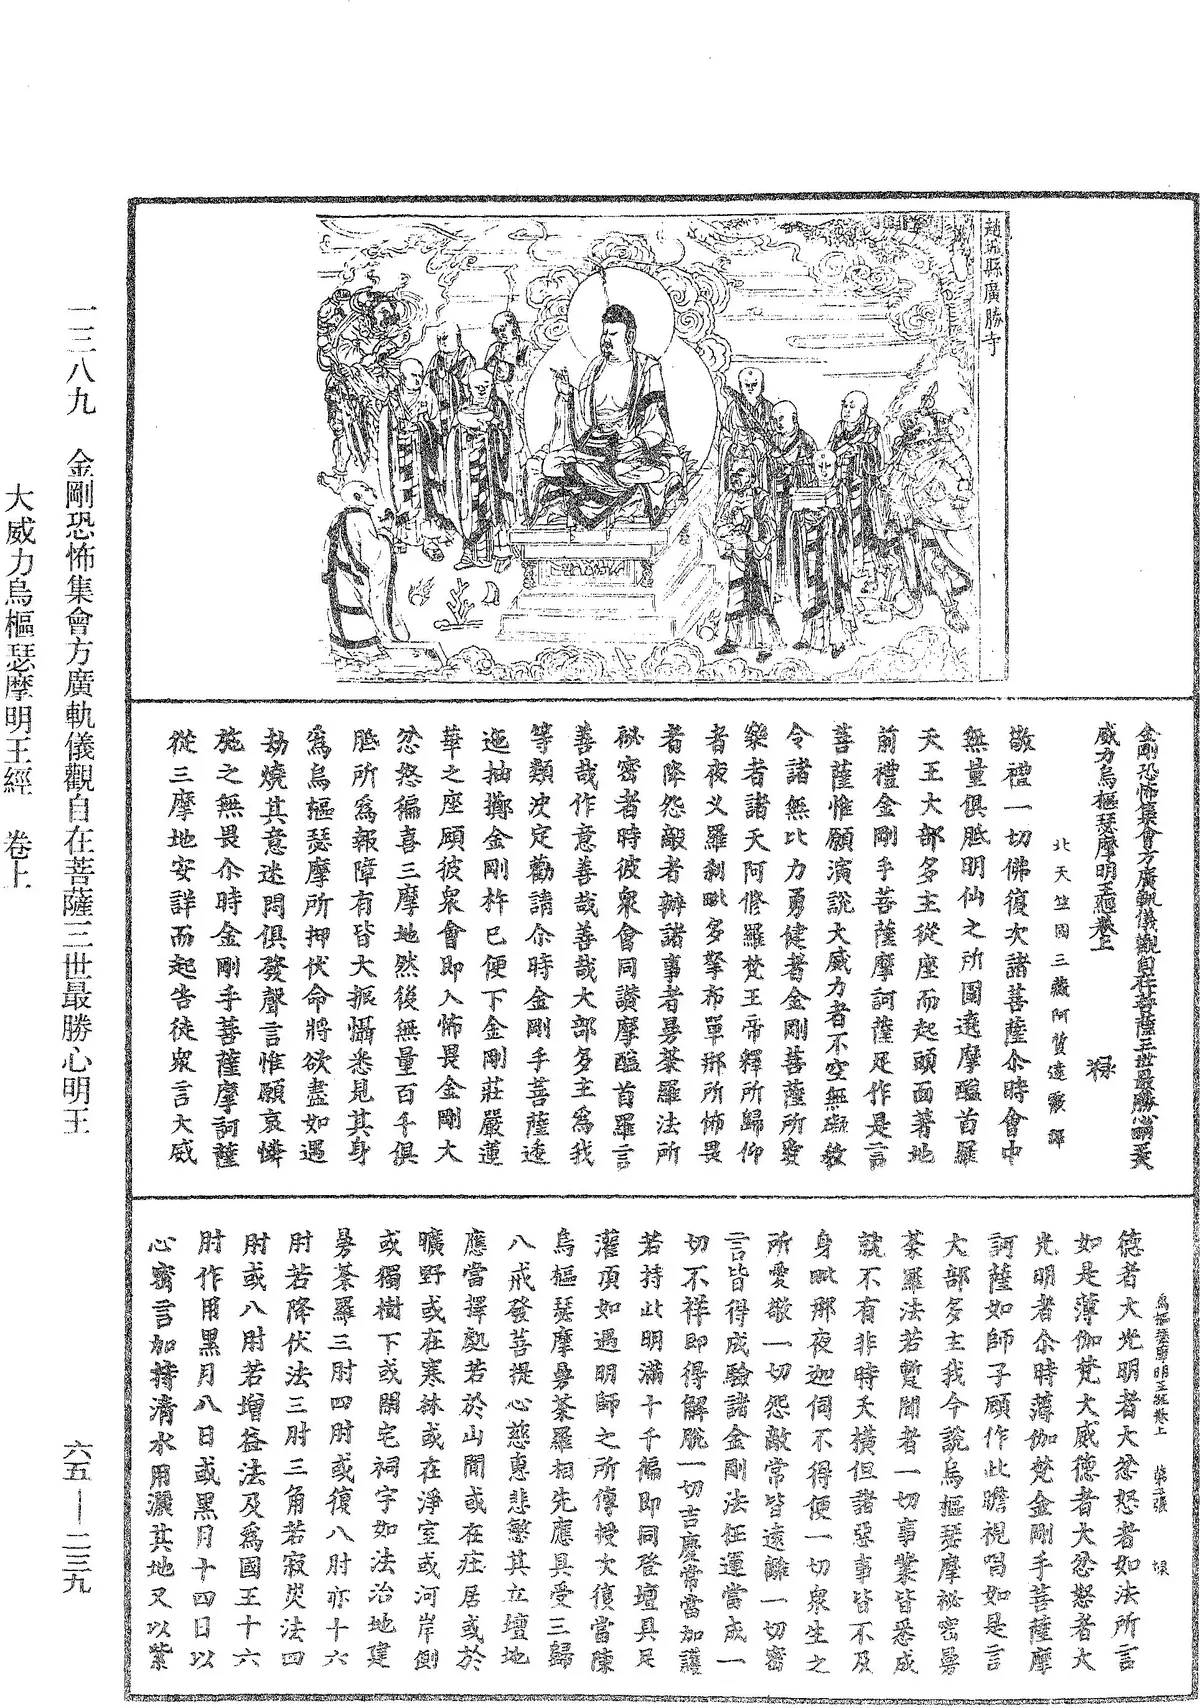 趙城縣廣勝寺
金剛恐怖集會方廣軌儀觀自在菩薩三世最勝心明王大
威力烏樞瑟摩明王經卷上 祿
北天竺國三藏阿質達霰譯
敬禮一切佛復次諸菩薩尒時會中
無量俱胝明仙之所圍遶摩醯首羅
天王大部多主從座而起頭面著地
前禮金剛手菩薩摩訶薩足作是言
菩薩惟願演說大威力者不空無礙教
令諸無比力勇健者金剛菩薩所愛
樂者諸天阿修羅梵王帝釋所歸仰
者夜叉羅剎毗多拏布單那所怖畏
者降怨敵者辦諸事者曼荼羅法所
祕密者時彼衆會同讚摩醯首羅言
善哉作意善哉善哉大部多主爲我
等類決定勸請尒時金剛手菩薩逶
迤抽擲金剛杵已便下金剛莊嚴蓮
華之座顧彼衆會即入怖畏金剛大
忿怒徧喜三摩地然後無量百千俱
胝所爲報障有皆大振懾悉見其身
爲烏樞瑟摩所押伏命將欲盡如遇
劫燒其意迷悶俱發聲言惟願哀憐
施之無畏尒時金剛手菩薩摩訶薩
從三摩地安詳而起告徒衆言大威
烏樞瑟摩明王經卷上 第二張 祿
德者大光明者大忿怒者如法所言
如是薄伽梵大威德者大忿怒者大
光明者尒時薄伽梵金剛手菩薩摩
訶薩如師子顧作此瞻視唱如是言
大部多主我今說烏樞瑟摩祕密曼
荼羅法若暫聞者一切事業皆悉成
就不有非時夭橫但諸惡事皆不及
身毗那夜迦伺不得便一切衆生之
所愛敬一切怨敵常皆遠離一切密
言皆得成驗諸金剛法任運當成一
切不祥即得解脫一切吉慶常當加護
若持此明滿十千徧即同登壇具足
灌頂如遇明師之所傳授文復當陳
烏樞瑟摩曼荼羅相先應具受三歸
八戒發菩提心慈惠悲繁其立壇地
應當擇勢若於山間或在莊居或於
曠野或在寒林或在淨室或河岸側
或獨樹下或閑宅祠宇如法治地建
曼荼羅三肘四肘或復八肘亦十六
肘若降伏法三肘三角若寂災法四
肘或八肘若增益法及爲國王十六
肘作用黑月八日或黑月十四日以
心密言加持清水用灑其地又以紫
一三八九 金剛恐怖集會方廣軌儀觀自在菩薩三世最勝心明王
大威力烏樞瑟摩明王經 卷上
六五—二三九